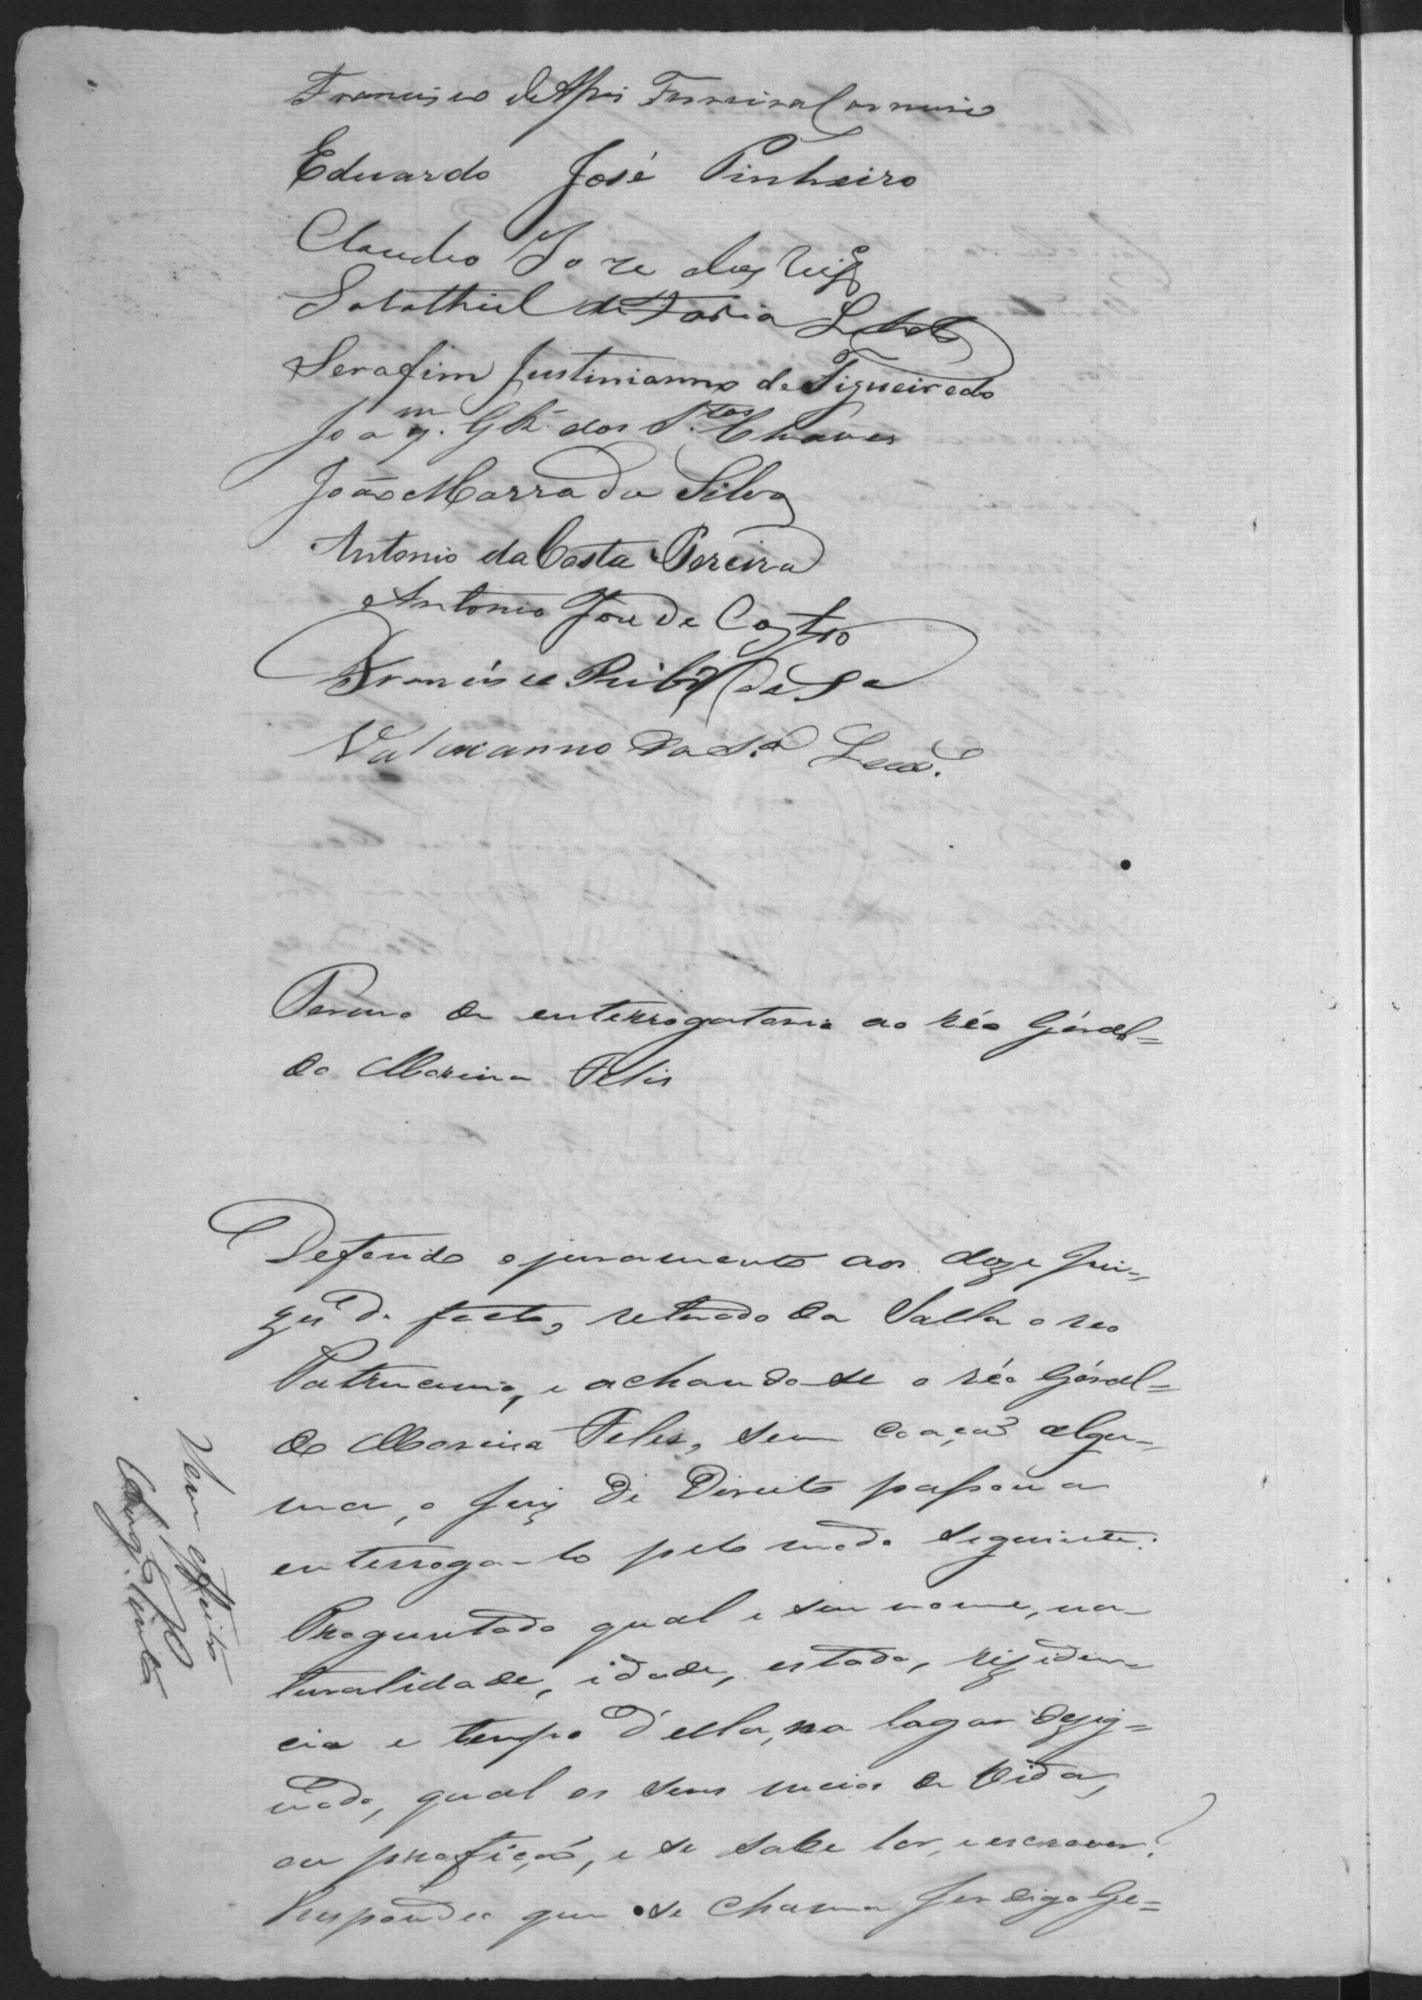 Francisco de Assis Ferreira Carneiro
Eduardo José Pinheiro
Claudio Joze dos Reis
Salathiel de Faria Lobato
Serafim Justinianno de Figueiredo
Joaqm. dos Stos Chaves
João Marra da Silva
Antonio da Costa Pereira
Antonio Jose de Castro
Francisco Ribro de Sa
da Sa Leão.
Termo de enterrogatorio ao réo Geral=
do Moreira Felis
Deferido o juramento aos doze Jui-
zes de facto, retirado da Salla o reo
Patrucinio, e achando-se o réo Geral=
do Moreira Felis, sem coação algu-
ma, o Juiz de Direito passou a
enterroga-lo pelo modo seguinte:
Preguntado qual e seu nome, na-
turalidade, idade, estado, reziden-
cia e tempo d'ella, no lugar dezig=
nado, qual os seus meios de vida,
ou profição, e se sabe ler, e escrever?
Respondeo que se chama digo Ge=
Sem effeito